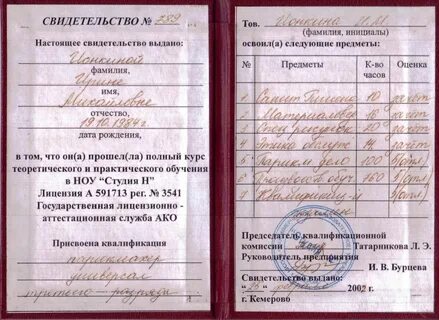 СВИДЕТЕЛЬСТВО № 789
Настоящее свидетельство выдано:
Ионкиной
фамилия,
Ирине
имя,
Михайловне
отчество,
19.10.1984г
дата рождения,
в том, что он(а) прошел(ла) полный курс
теоретического и практического обучения
в НОУ “Студия Н”
Лицензия А 591713 рег. № 3541
Государственная лицензионно -
аттестационная служба АКО
Присвоена квалификация
парикмахер
универсал
третьего разряда
Тов. Ионкина И.М.
(фамилия, инициалы)
освоил(а) следующие предметы:
№ Предметы К-во часов Оценка
1 10 зачёт
2 зачёт
3 10 зачёт
4 зачёт
5 Парикм. дело 100 5(отл)
6 обуч. 5(отл)
7
Председатель квалификационной
комиссии Татарникова Л. Э.
Руководитель предприятия
И. В. Бурцева
Свидетельство выдано:
2002 г
г. Кемерово